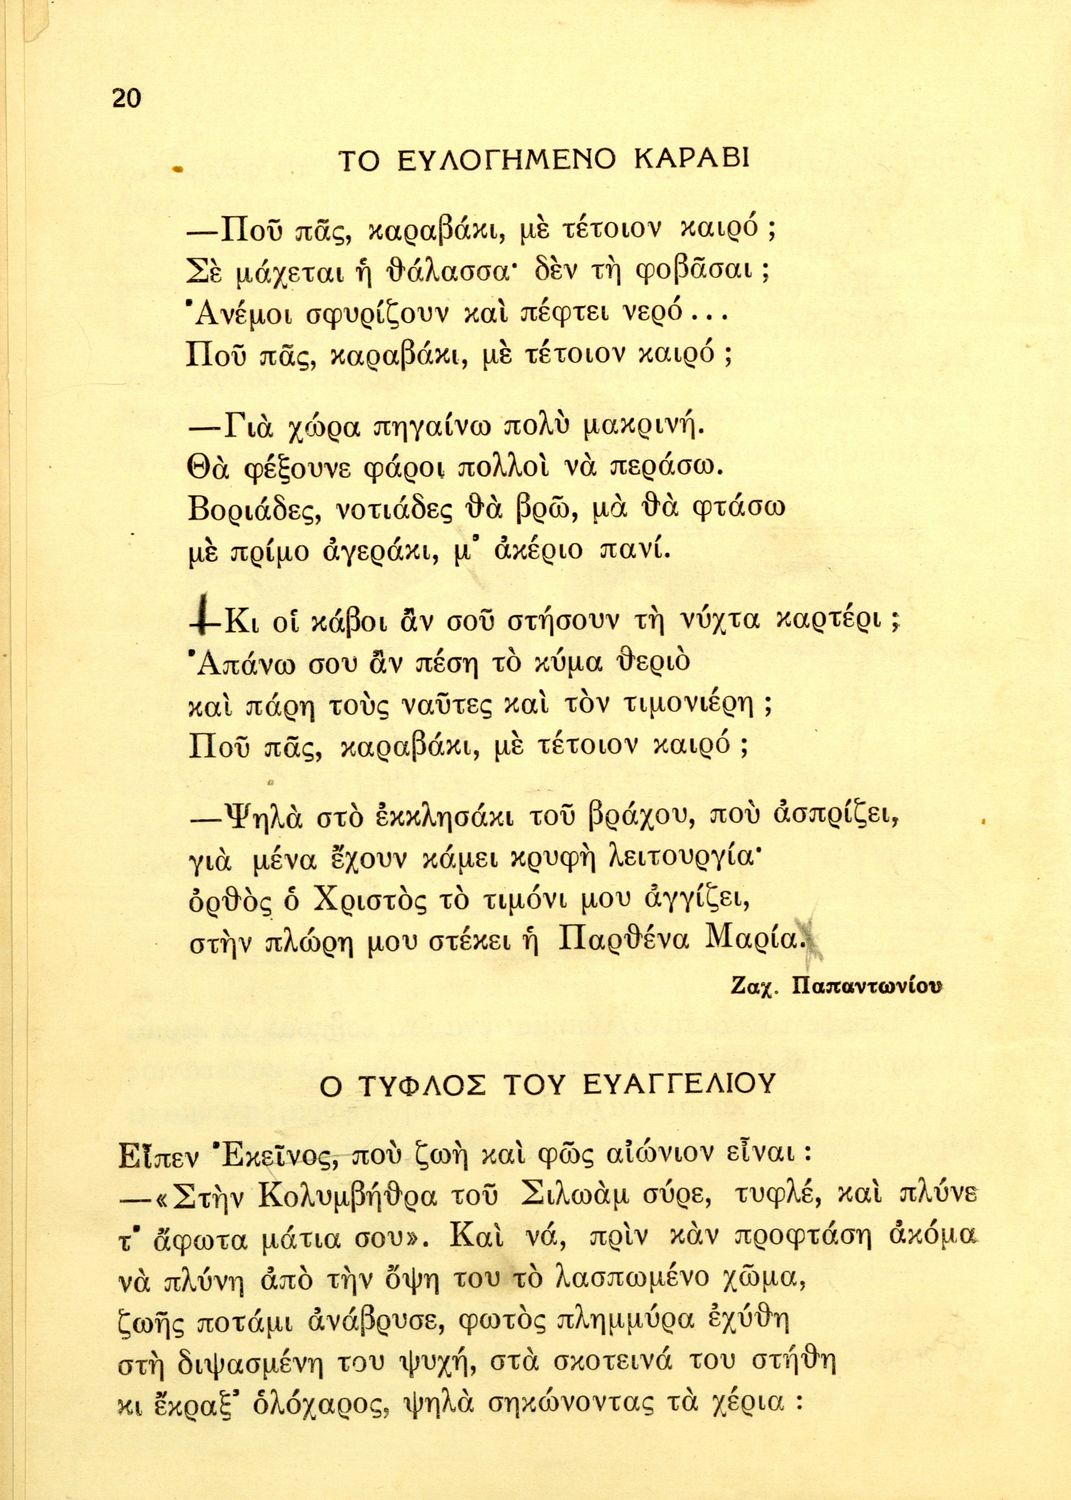 20
ΤΟ ΕΥΛΟΓΗΜΕΝΟ ΚΑΡΑΒΙ
—Ποῦ πᾶς, καραβάκι, μὲ τέτοιον καιρό ;
Σὲ μάχεται ἡ θάλασσα· δὲν τὴ φοβᾶσαι ;
Ἀνέμοι σφυρίζουν καὶ πέφτει νερό...
Ποῦ πᾶς, καραβάκι, μὲ τέτοιον καιρό ;
—Γιὰ χώρα πηγαίνω πολὺ μακρινή.
Θὰ φέξουνε φάροι πολλοὶ νὰ περάσω.
Βοριάδες, νοτιάδες θὰ βρῶ, μὰ θὰ φτάσω
μὲ πρίμο ἀγεράκι, μ᾿ ἀκέριο πανί.
—Κι οἱ κάβοι ἂν σοῦ στήσουν τὴ νύχτα καρτέρι ;
Ἀπάνω σου ἂν πέση τὸ κύμα θεριὸ
καὶ πάρη τοὺς ναῦτες καὶ τὸν τιμονιέρη ;
Ποῦ πᾶς, καραβάκι, μὲ τέτοιον καιρό ;
—Ψηλὰ στὸ ἐκκλησάκι τοῦ βράχου, ποὺ ἀσπρίζει,
γιὰ μένα ἔχουν κάμει κρυφὴ λειτουργία·
ὀρθὸς ὁ Χριστὸς τὸ τιμόνι μου ἀγγίζει,
στὴν πλώρη μου στέκει ἡ Παρθένα Μαρία.
Ζαχ. Παπαντωνίου
Ο ΤΥΦΛΟΣ ΤΟΥ ΕΥΑΓΓΕΛΙΟΥ
Εἶπεν Ἐκεῖνος, ποὺ ζωὴ καὶ φῶς αἰώνιον εἶναι :
—«Στὴν Κολυμβήθρα τοῦ Σιλωὰμ σύρε, τυφλέ, καὶ πλύνε
τ᾿ ἄφωτα μάτια σου». Καὶ νά, πρὶν κὰν προφτάση ἀκόμα
νὰ πλύνη ἀπὸ τὴν ὄψη του τὸ λασπωμένο χῶμα,
ζωῆς ποτάμι ἀνάβρυσε, φωτὸς πλημμύρα ἐχύθη
στὴ διψασμένη του ψυχή, στὰ σκοτεινά του στήθη
κι ἔκραξ᾿ ὁλόχαρος, ψηλὰ σηκώνοντας τὰ χέρια :